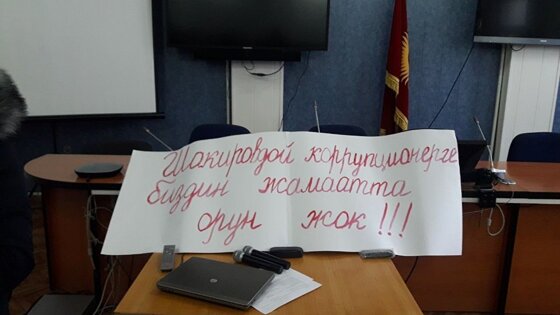 Шакировдой коррупционерге
биздин жамаатта
орун жок!!!